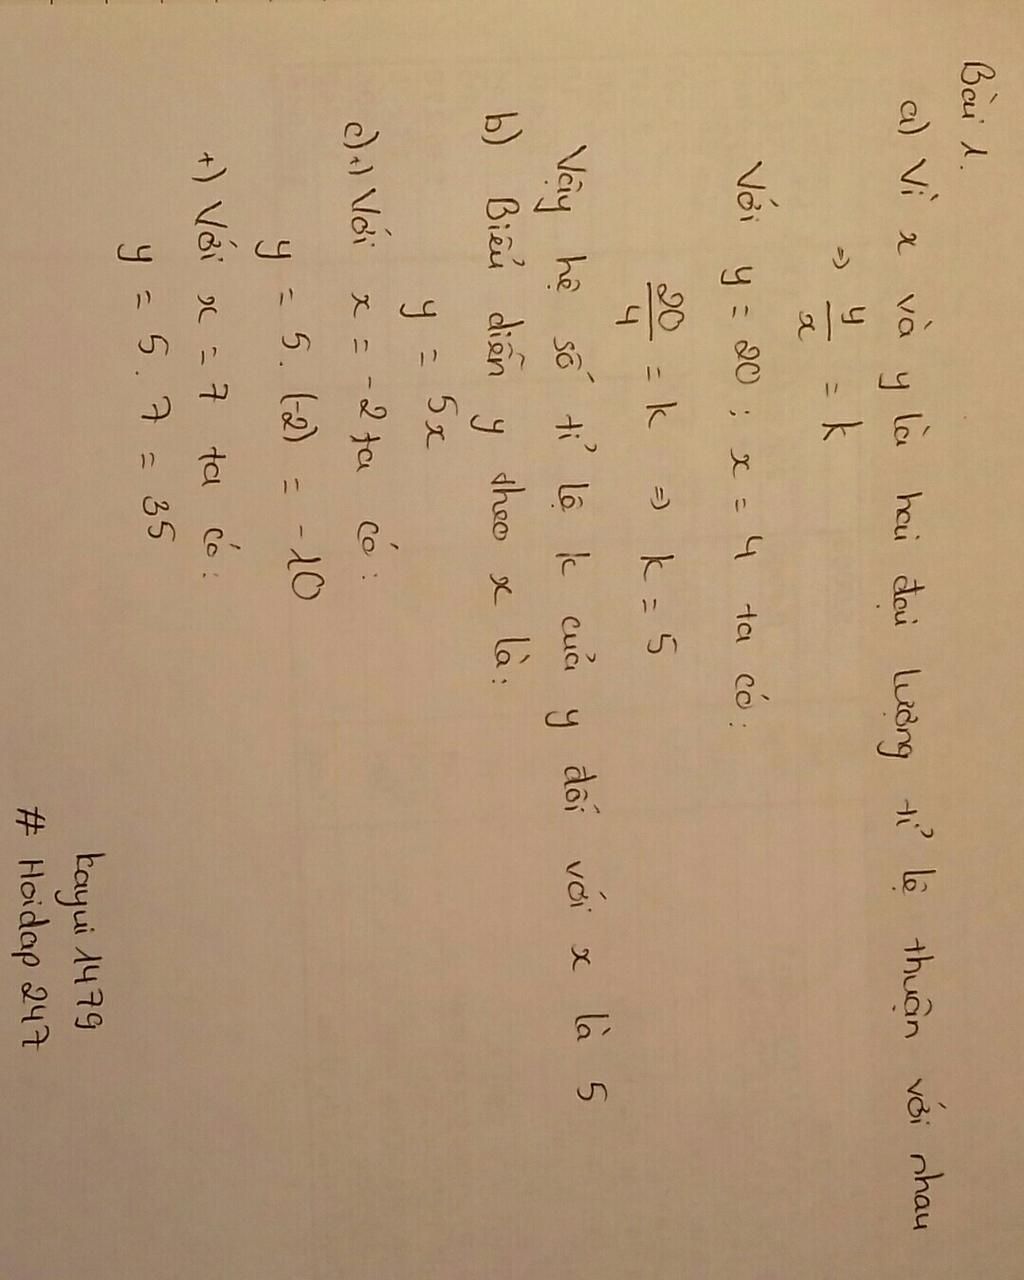 Bài 1.
a) Vì x và y là hai đại lượng tỉ lệ thuận với nhau
=> y/x = k
Với y = 20 ; x = 4 ta có :
20/4 = k => k = 5
Vậy hệ số tỉ lệ k của y đối với x là 5
b) Biểu diễn y theo x là :
y = 5x
c) +) Với x = -2 ta có :
y = 5 . (-2) = -10
+) Với x = 7 ta có :
y = 5 . 7 = 35
kayui 1479
# Hoidap 247